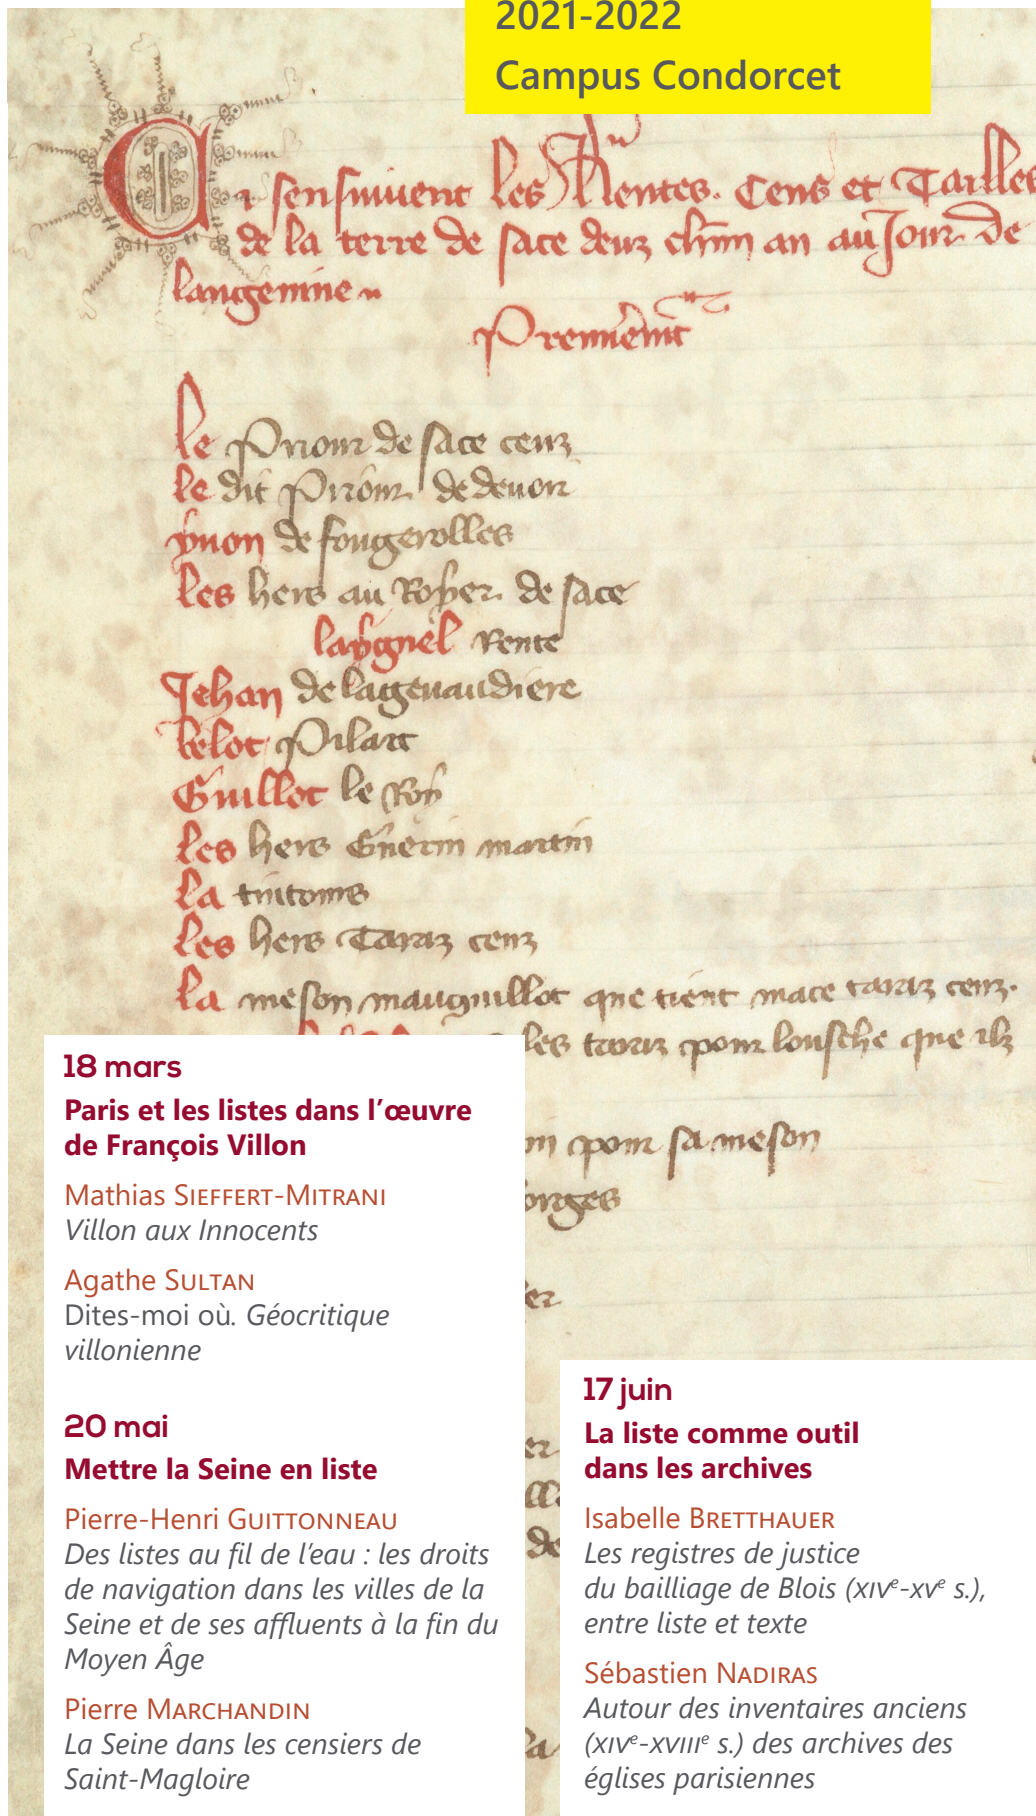 2021-2022
Campus Condorcet
sensuivent les Rentes. Cens et Tailles
de la terre de sace deuz chun an au Jour de
langevine
Premierement
le Priour de sace cenz
le dit Priour de devoir
yvon de fougerolles
les hers au Royer de sace
laygnel Rente
Jehan de lagenaudiere
belot Pilart
Guillot le Roy
les hers Guerin martin
la
les hers Taraz cenz
la meson mauguillot que tient mace taraz cenz.
les taraz pour lousche que ilz
pour sa meson
orges
er
18 mars
Paris et les listes dans l’œuvre
de François Villon
Mathias Sieffert-Mitrani
Villon aux Innocents
Agathe Sultan
Dites-moi où. Géocritique
villonienne
20 mai
Mettre la Seine en liste
Pierre-Henri Guittonneau
Des listes au fil de l’eau : les droits
de navigation dans les villes de la
Seine et de ses affluents à la fin du
Moyen Âge
Pierre Marchandin
La Seine dans les censiers de
Saint-Magloire
17 juin
La liste comme outil
dans les archives
Isabelle Bretthauer
Les registres de justice
du bailliage de Blois (XIVe-XVe s.),
entre liste et texte
Sébastien Nadiras
Autour des inventaires anciens
(XIVe-XVIIIe s.) des archives des
églises parisiennes